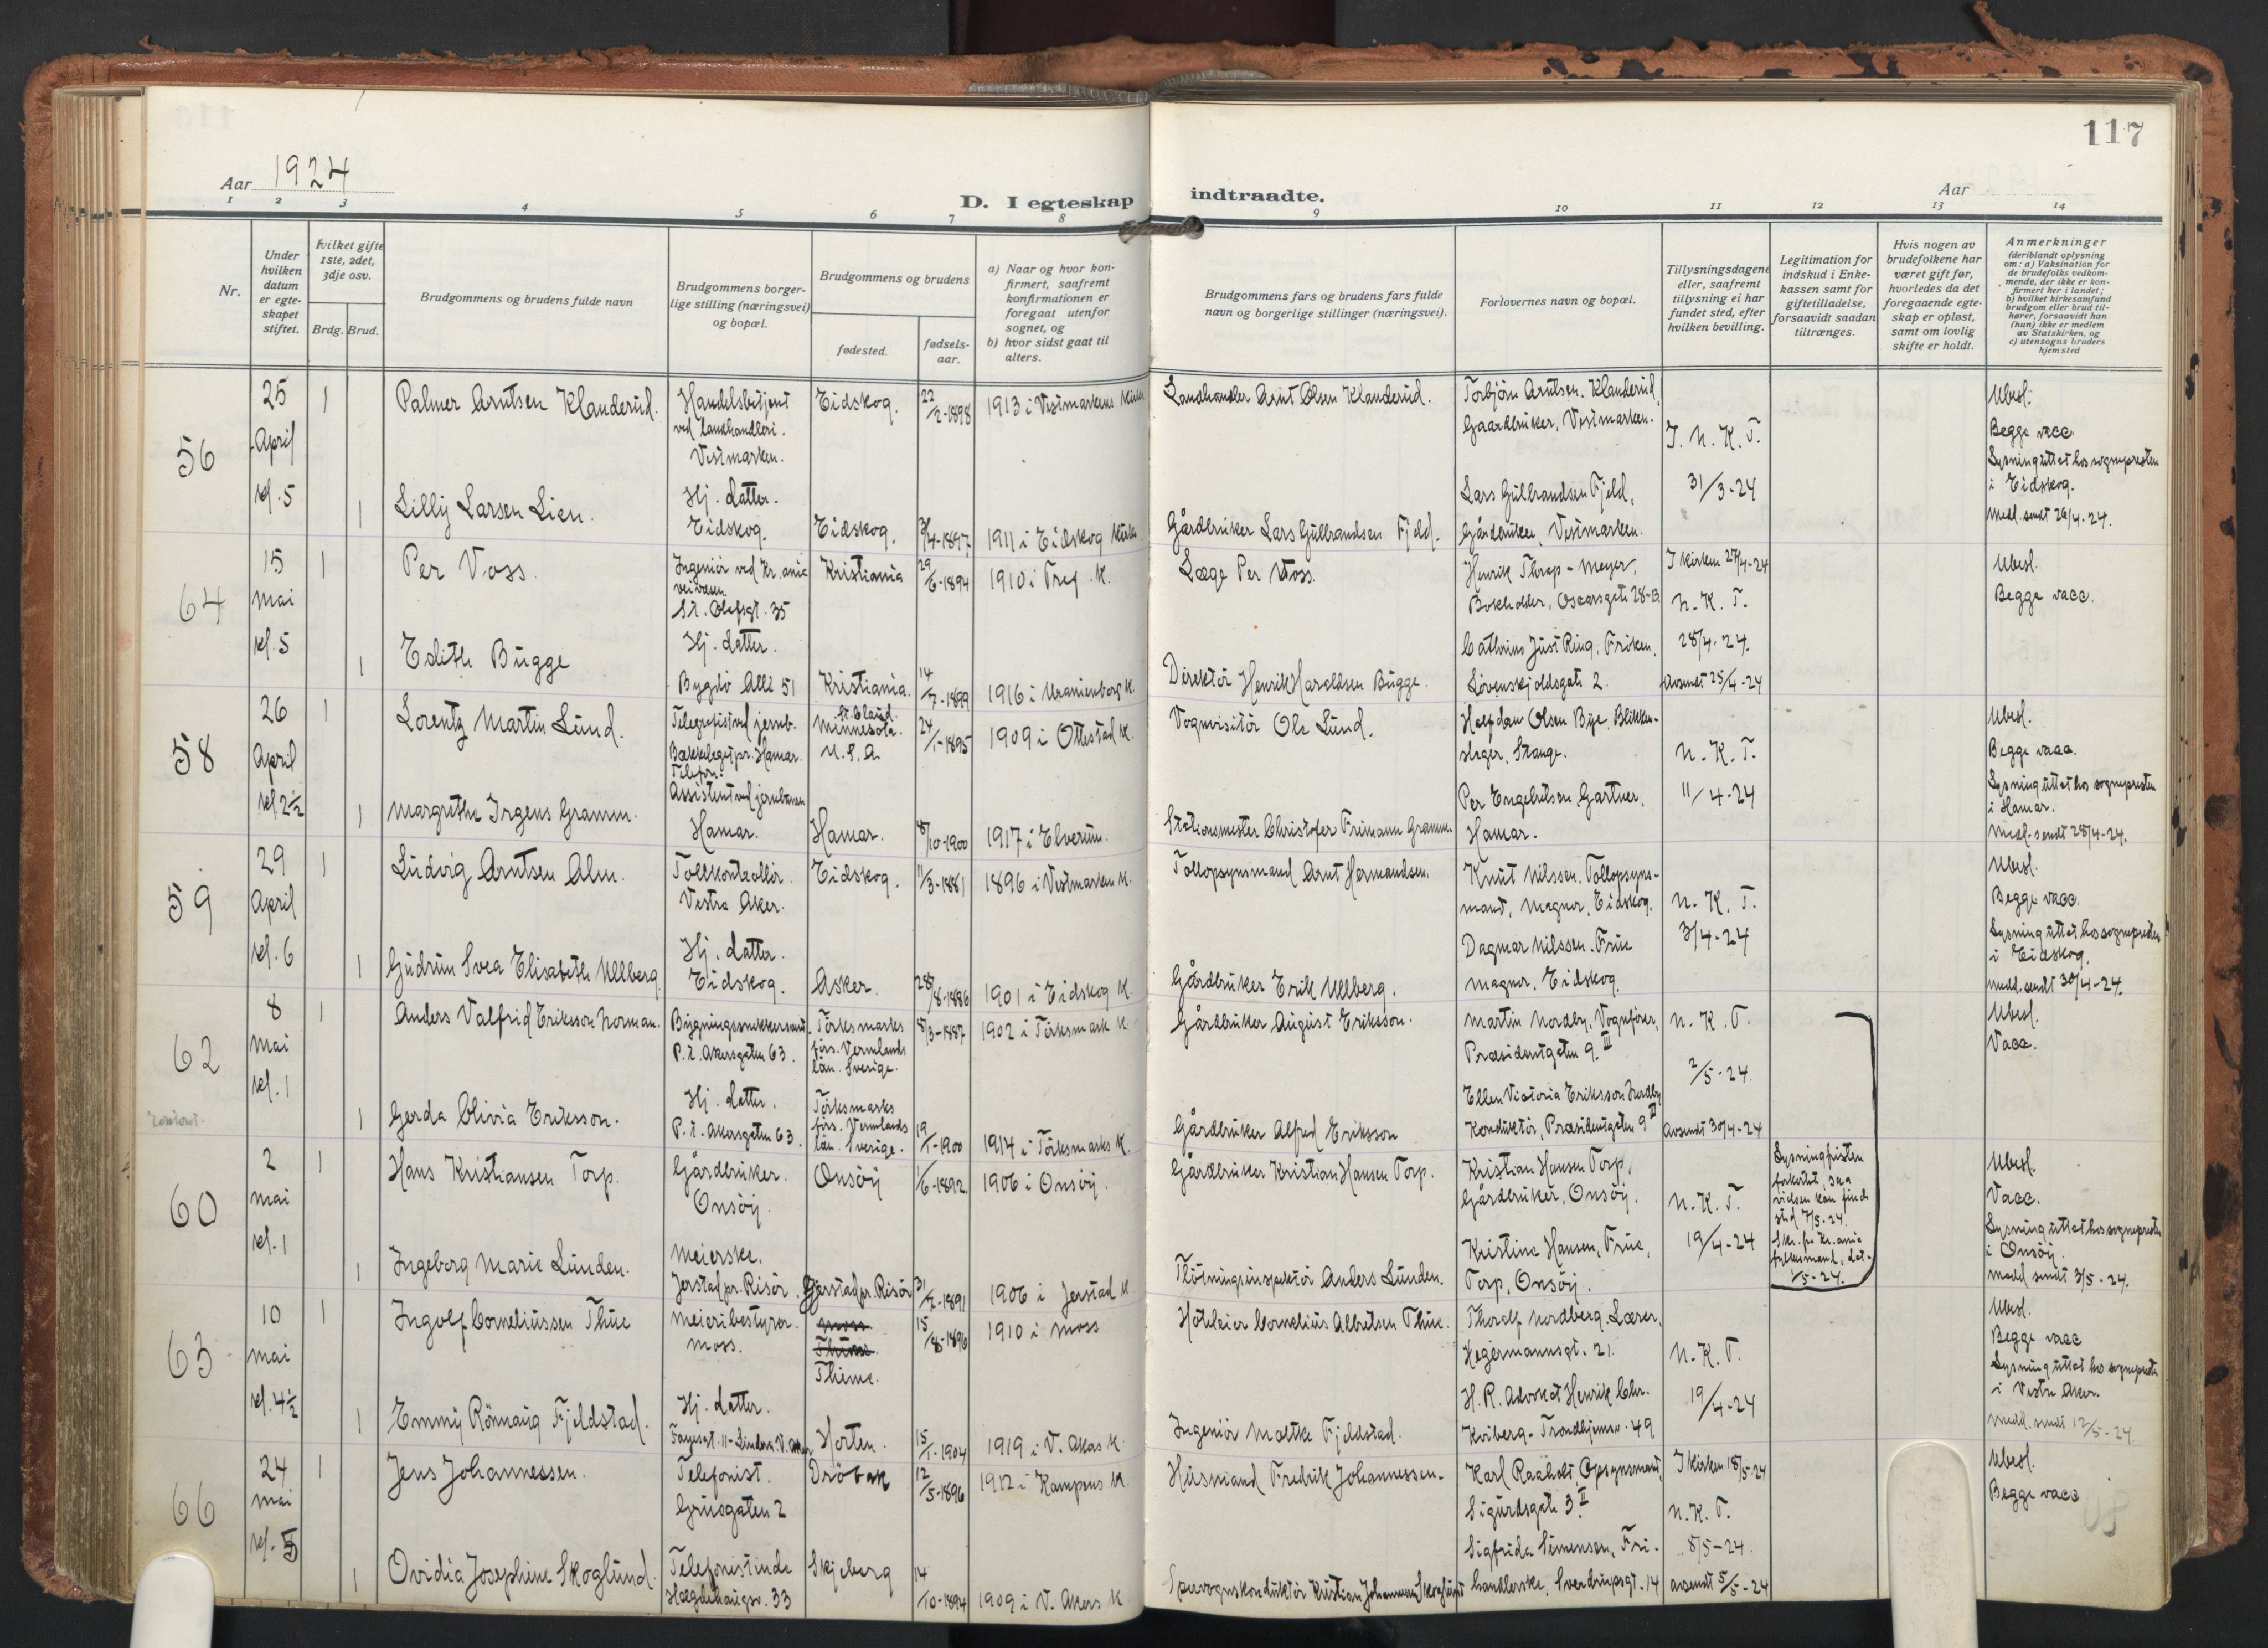 117
Aar 1924
D. I egteskap indtraadte.
Aar
1 2 3 4 5 6 7 8 9 10 11 12 13 14
Nr.
Under hvilken datum er egteskapet stiftet.
Hvilket gifte 1ste, 2det, 3dje osv.
Brdg. Brud.
Brudgommens og brudens fulde navn
Brudgommens borgerlige stilling (næringsvei) og bopæl.
Brudgommens og brudens
fødested.
fødselsaar.
a) Naar og hvor konfirmert, saafremt konfirmationen er foregaat utenfor sognet, og
b) hvor sidst gaat til alters.
Brudgommens fars og brudens fars fulde navn og borgerlige stillinger (næringsvei).
Forlovernes navn og bopæl.
Tillysningsdagene eller, saafremt tillysning ei har fundet sted, efter hvilken bevilling.
Legitimation for indskud i Enkekassen samt for giftetilladelse, forsaavidt saadan tiltrænges.
Hvis nogen av brudefolkene har været gift før, hvorledes da det foregaaende egteskap er opløst, samt om lovlig skifte er holdt.
Anmerkninger (deriblandt oplysning om: a) Vaksination for de brudefolks vedkommende, der ikke er konfirmert her i landet; b) hvilket kirkesamfund brudgom eller brud tilhører, forsaavidt han (hun) ikke er medlem av Statskirken, og c) utensogns bruders hjemsted
56
25 April kl. 5
1
Palmer Arntsen Klanderud.
Handelsbetjent ved Landhandleri. Vestmarken.
Eidskog.
22/2-1898
1913 i Vestmarkens Kirke
Landhandler Arnt Olsen Klanderud.
Torbjørn Arntsen Klanderud, Gaardbruker, Vestmarken.
J. N. K. T.
31/3-24
Ubesl.
Begge vacc
Lysning uttat hos sognepresten i Eidskog.
Medd. sendt 26/4-24.
1
Lilly Larsen Lien.
Hj. datter. Eidskog.
Eidskog.
/4-1897
1911 i Eidskog Kirke
Gårdbruker Lars Gulbrandsen Fjeld.
Lars Gulbrandsen Fjeld, Gårdbruker, Vestmarken.
64
15 mai kl. 5
1
Per Voss.
Ingeniør ved Kr.ania veivæsen St. Olafsgt. 35
Kristiania
29/6-1894
1910 i Tref. K.
Læge Per Voss.
Henrik Thrap-Meyer, Bokholder, Oscarsgate 28-B
I kirken 27/4-24
N. K. T.
28/4-24.
Avsendt 25/4-24
Ubesl.
Begge vacc.
1
Edith Bugge
Hj. datter. Bygdø Allé 51
Kristiania.
14/7-1899
1916 i Uranienborg K.
Direktør Henrik Haraldsen Bugge.
Cathrinus Just Ring, Frøken, Løvenskjoldsgate 2.
58
26 April kl 2½
1
Lorentz Martin Lund.
Telegrafist ved jernb. Bækkelaget pr. Hamar.
St. Cloud. Minnesota. U. S. A.
24/1-1895
1909 i Ottestad K.
Vognvisitør Ole Lund.
Halfdan Olsen Bye, Blikkenslager, Stange.
N. K. T.
11/4-24
Ubesl.
Begge vacc.
Lysning uttat hos sognepresten i Hamar.
Medd. sendt 28/4-24.
1
Margrethe Irgens Gramm.
Telefon. Assistent ved jernbanen Hamar.
Hamar.
8/10-1900
1917 i Elverum.
Stationsmester Christofer Frimann Gramm
Per Engebretsen Gartner, Hamar.
59
29 April kl. 6
1
Ludvig Arntsen Alm.
Tollkontrollør. Vestre Aker.
Eidskog.
11/3-1881
1896 i Vestmarken K.
Tollopsynsmand Arnt Hermandsen.
Knut Nilssen. Tollopsynsmand, Magnor, Eidskog.
N. K. T.
3/4-24
Ubesl.
Begge vacc.
Lysning uttat hos sognepresten i Eidskog.
Medd. sendt 30/4-24.
1
Gudrun Svea Elisabeth Ullberg
Hj. datter. Eidskog.
Asker.
28/8-1886
1901 i Eidskog K.
Gårdbruker Erik Ullberg.
Dagmar Nilssen. Frue Magnor, Eidskog.
62
8 mai kl. 1
1
Anders Valfrid Eriksson Norman.
Bygningssnekkersvend. P.t. Akersgaten 63.
Torksmarks förs. Vermlands län. Sverige.
8/3-1887
1902 i Törksmark K.
Gårdbruker August Eriksson.
Martin Nordby, Vognfører, Præsidentgaten 9. III
N. K. T.
2/5-24.
Avsendt 30/4-24
Ubesl.
Vacc.
1
Gerda Olivia Eriksson.
Hj. datter. P.t. Akersgaten 63.
Torksmarks förs. Vermlands län. Sverige.
19/1-1900
1914 i Törksmarks K.
Gårdbruker Alfred Eriksson
Ellen Victoria Eriksson Nordby Konduktør, Præsidentgaten 9 III
60
2 mai kl. 1
1
Hans Kristiansen Torp.
Gårdbruker. Onsøy.
Onsøy
1/6-1892.
1906 i Onsøy.
Gårdbruker Kristian Hansen Torp.
Kristian Hansen Torp, Gårdbruker, Onsøy.
N. K. T.
19/4-24
Lysningfristen forkortet, saa vielsen kan finde sted 7/5-24. Skr. fr. Kr.ania fylkesmand, dat. 1/5-24.
Ubesl.
Vacc.
Lysning uttat hos sognepresten i Onsøy.
medd sendt 3/5-24.
1
Ingeborg Marie Lunden.
Meierske. Jerstad pr. Risør.
Gjerstad pr. Risør
31/7-1891
1906 i Jerstad K
Fløtningsinspektør Anders Lunden.
Kristine Hansen, Frue, Torp, Onsøy.
63
10 mai kl. 4½
1
Ingolf Corneliussen Thue
Meieribestyrer. Moss.
Thime.
15/8-1896
1910 i Moss
Hotleier Cornelius Albretsen Thue.
Thoralf Nordberg, Lærer, Hegermannsgt. 21.
N. K. T.
19/4-24
Ubesl.
Begge vacc
Lysning uttat hos sognepresten i Vestre Aker.
Medd. sendt 12/5-24.
1
Emmy Rönnaug Fjeldstad.
Hj. datter.
Horten.
15/1-1904
1919 i V. Akers K
Ingeniør Moltke Fjeldstad.
H. R. Advokat Henrik Chr. Kviberg- Trondhjemsv. 49
66
24 mai kl. 5
1
Jens Johannessen.
Telefonist. Grüsgaten 2
Drøbak
12/5-1896
1912 i Kampens K.
Husmand Fredrik Johannessen.
Karl Raaholt, Opsynsmand, Sigurdsgate 3 II
I kirken 18/5-24
N. K. T.
8/5-24.
avsendt 5/5-24
Ubesl.
Begge vacc
1
Ovidia Josephine Skoglund.
Telefonistinde Hægdehaugsv. 33
Skjeberg
14/10-1894
1909 i V. Akers K
Sporvognskonduktør Kristian Johannessen Skoglund
Sigfrida Simensen, Frihandlerske, Sverdrupsgt. 14